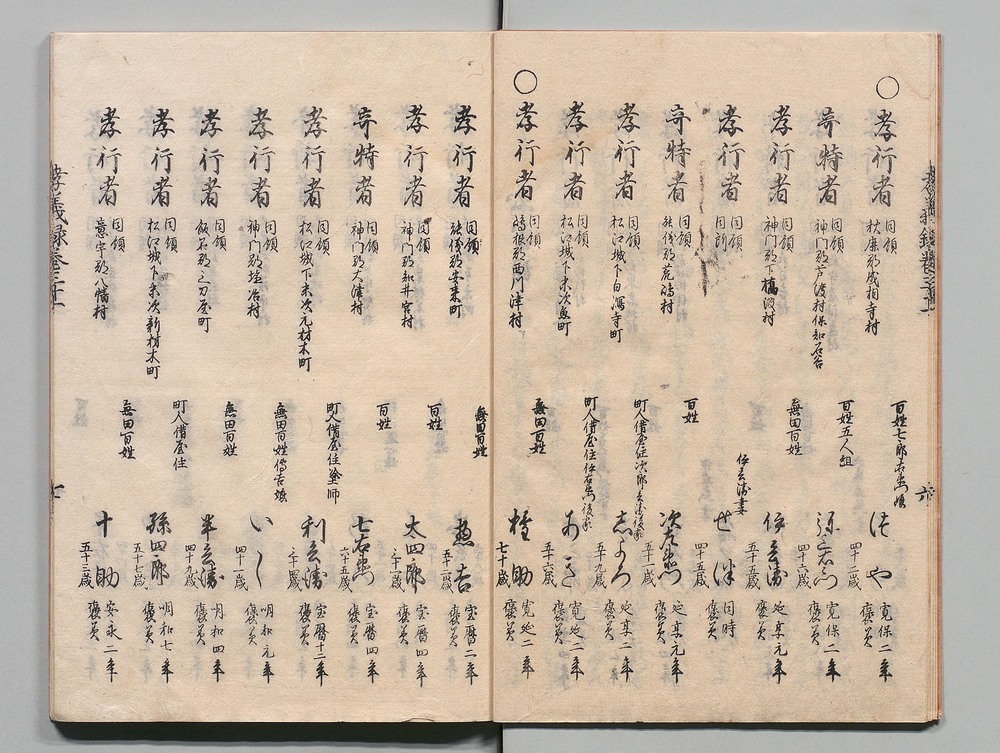 孝義録巻三十一
六
○孝行者 同領 秋鹿郡成相寺村 百姓七郎右衛門娘 はや 四十二歳 寛保二年 褒美
奇特者 同領 神門郡芦渡村保知石谷 百姓五人組 四十六歳 寛保二年 褒美
孝行者 同領 神門郡下橋波村 無田百姓 伊兵衛 五十五歳 延享元年 褒美
孝行者 同領 同所 伊兵衛妻 四十五歳 同時 褒美
奇特者 同領 能儀郡荒嶋村 百姓 次右衛門 五十一歳 延享元年 褒美
孝行者 同領 松江城下白潟寺町 町人借屋住次郎兵衛後家 五十九歳 延享二年 褒美
孝行者 同領 松江城下末次魚町 町人借屋住仁右衛門後家 五十六歳 寛延二年 褒美
○孝行者 同領 嶋根郡西川津村 無田百姓 権助 七十歳 寛延二年 褒美
孝行者 同領 能儀郡安来町 無田百姓 惣吉 五十一歳 宝暦二年 褒美
孝行者 同領 神門郡知井宮村 百姓 太四郎 三十一歳 宝暦四年 褒美
奇特者 同領 神門郡大津村 百姓 七右衛門 六十五歳 宝暦四年 褒美
孝行者 同領 松江城下末次元材木町 町人借屋住塗師 利兵衛 三十四歳 宝暦十二年 褒美
孝行者 同領 神門郡塩冶村 無田百姓傳吉娘 いし 四十一歳 明和元年 褒美
孝行者 同領 飯石郡三刀屋町 無田百姓 半兵衛 四十九歳 明和四年 褒美
孝行者 同領 松江城下末次新材木町 町人借屋住 孫四郎 五十七歳 明和七年 褒美
孝行者 同領 意宇郡八幡村 無田百姓 十助 五十三歳 安永二年 褒美
孝義録巻三十一
七